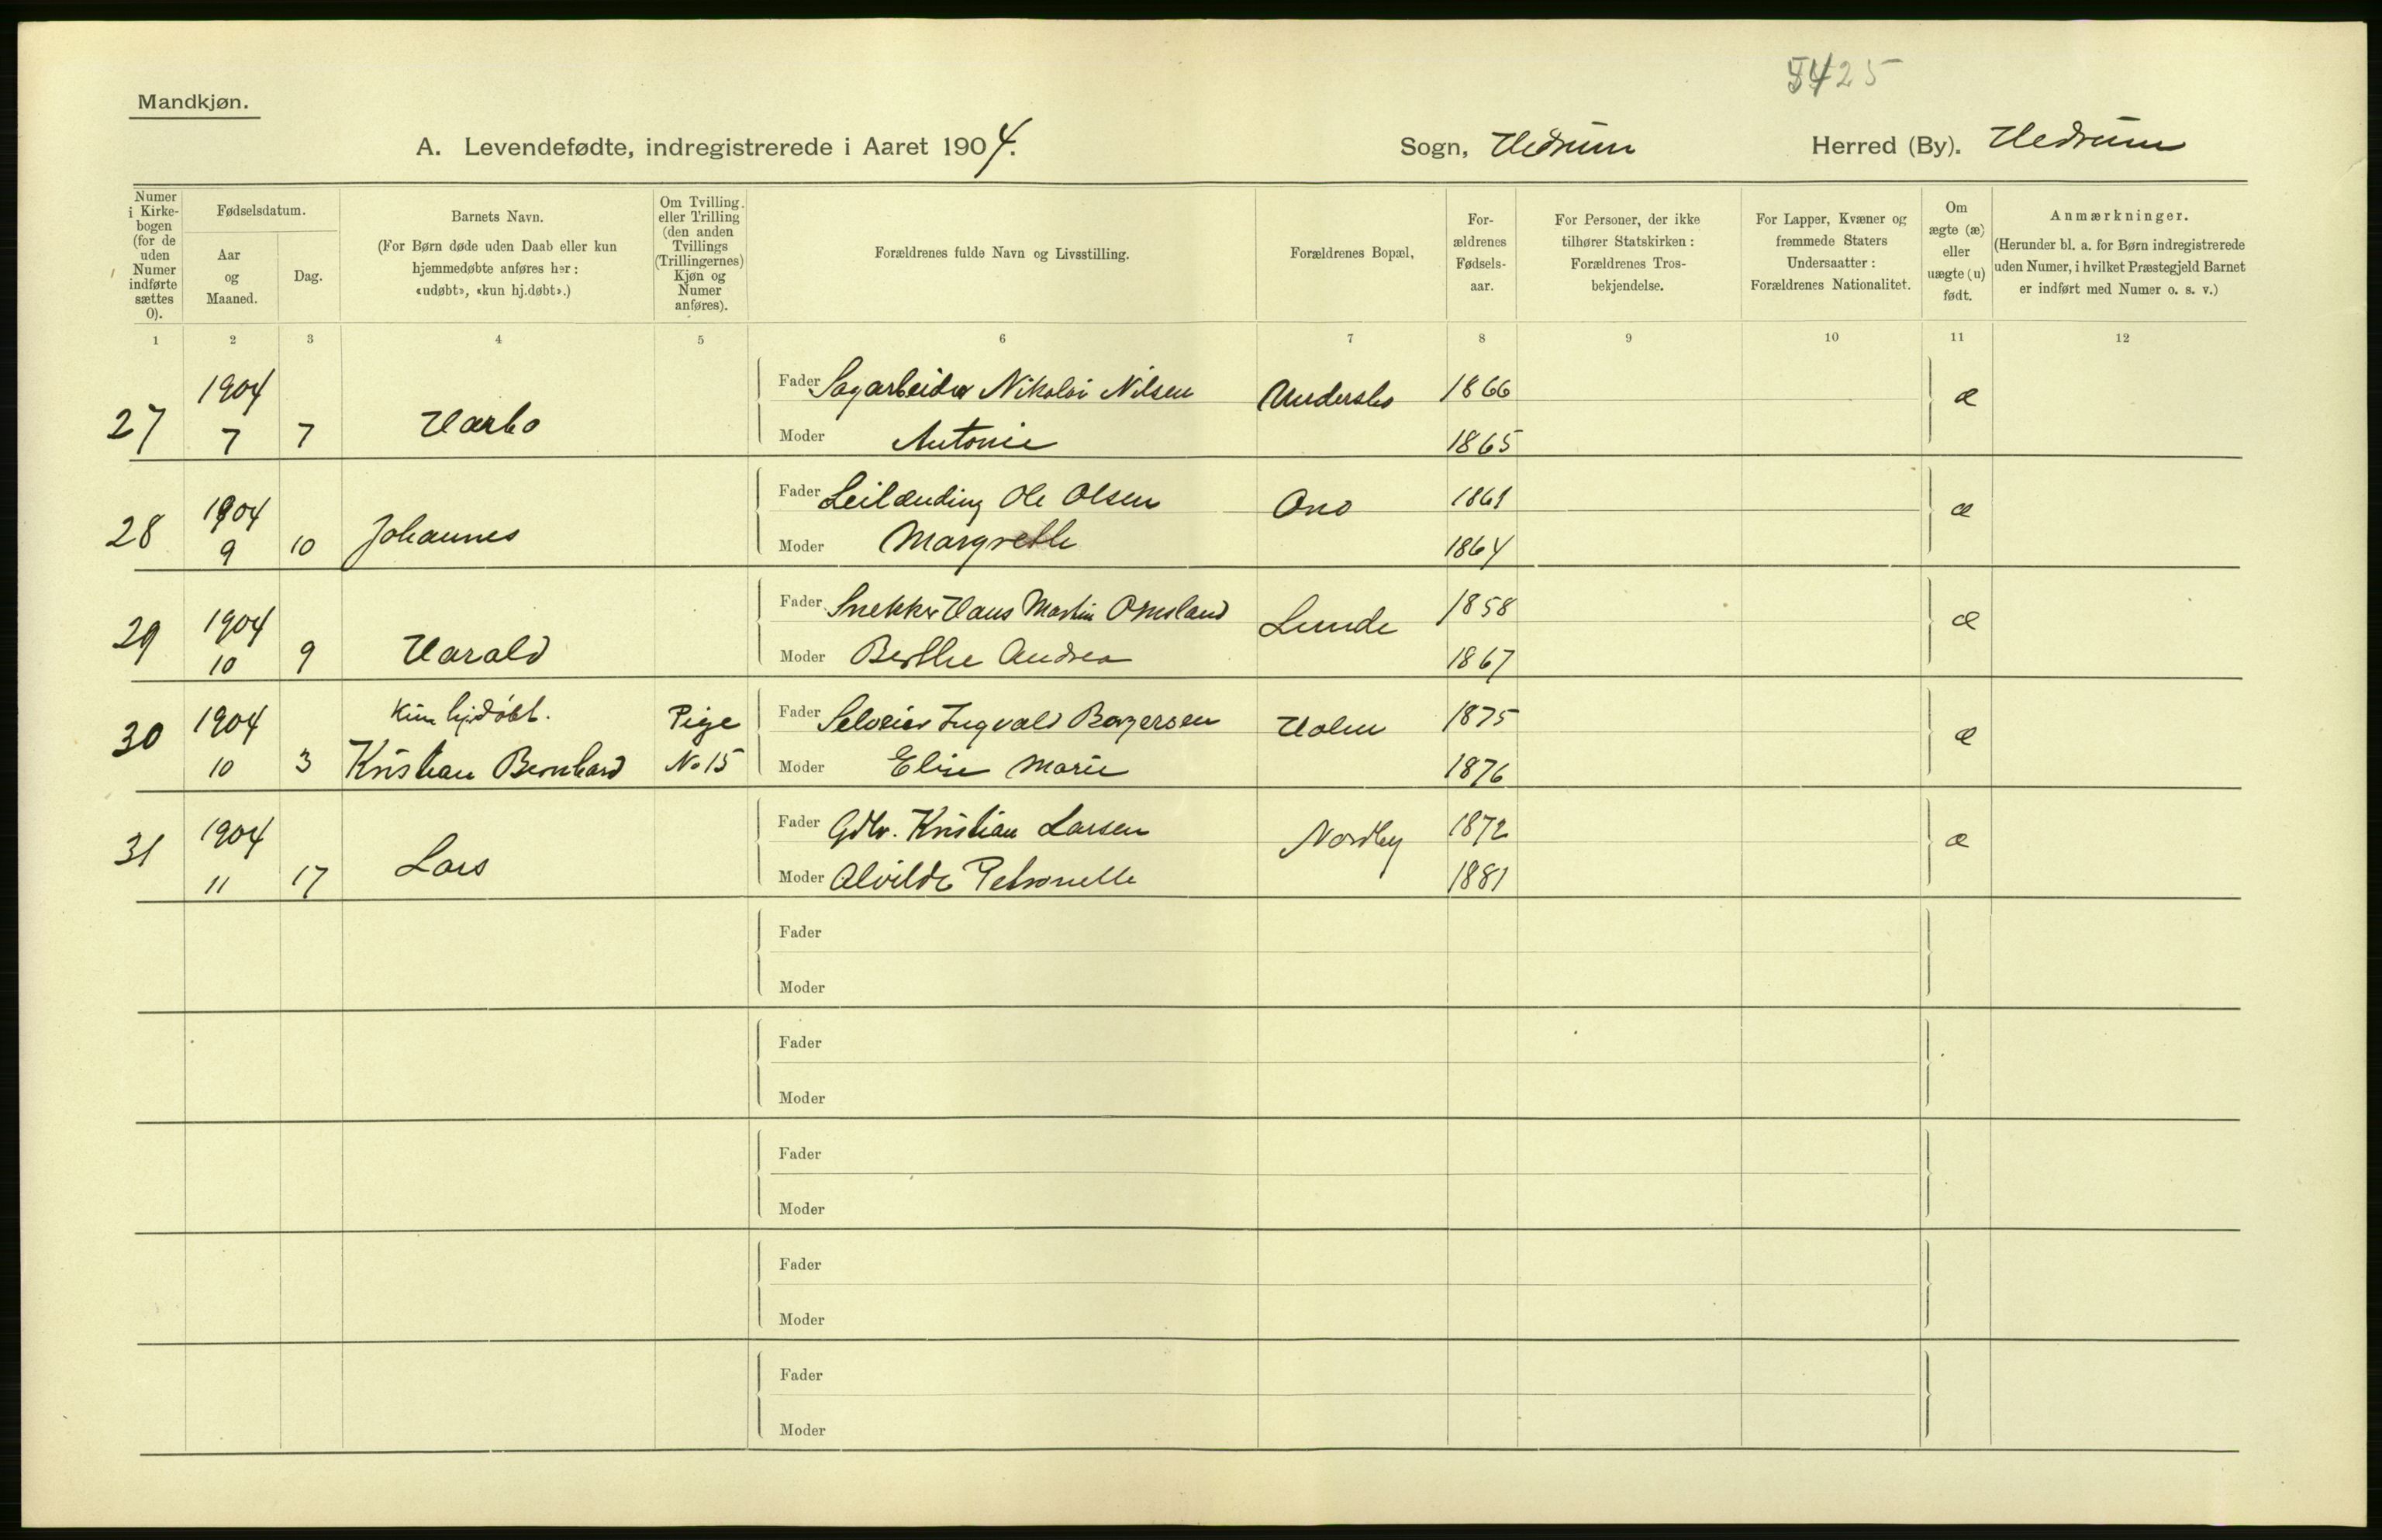 5425
Mandkjøn.
A. Levendefødte, indregistrerede i Aaret 1904. Sogn, Hedrum Herred (By). Hedrum
Numer i Kirke-bogen (for de uden Numer indførte sættes 0).
Fødselsdatum.
Aar og Maaned.
Dag.
Barnets Navn.
(For Børn døde uden Daab eller kun hjemmedøbte anføres her: «udøbt», «kun hj.døbt».)
Om Tvilling eller Trilling (den anden Tvillings (Trillingernes) Kjøn og Numer anføres).
Forældrenes fulde Navn og Livsstilling.
Forældrenes Bopæl,
For-ældrenes Fødsels-aar.
For Personer, der ikke tilhører Statskirken: Forældrenes Tros-bekjendelse.
For Lapper, Kvæner og fremmede Staters Undersaatter: Forældrenes Nationalitet.
Om ægte (æ) eller uægte (u) født.
Anmærkninger.
(Herunder bl. a. for Børn indregistrerede uden Numer, i hvilket Præstegjeld Barnet er indført med Numer o. s. v.)
1 2 3 4 5 6 7 8 9 10 11 12
27 1904 7 7 Harbo Fader Sagarbeider Nikolai Nilsen Anderslo 1866 æ
Moder Antonie 1865
28 1904 9 10 Johannes Fader Leilænding Ole Olsen Ono 1861 æ
Moder Margrethe 1864
29 1904 10 9 Harald Fader Snekker Hans Martin Omsland Lunde 1858 æ
Moder Berthe Andrea 1867
30 1904 10 3 Kun hj.døbt. Pige Fader Selveier Ingvald Borgersen Holm 1875 æ
Kristian Bernhard No 15 Moder Elise Marie 1876
31 1904 11 17 Lars Fader Gdbr. Kristian Larsen Nordby 1872 æ
Moder Alvilde Petronelle 1881
Fader
Moder
Fader
Moder
Fader
Moder
Fader
Moder
Fader
Moder